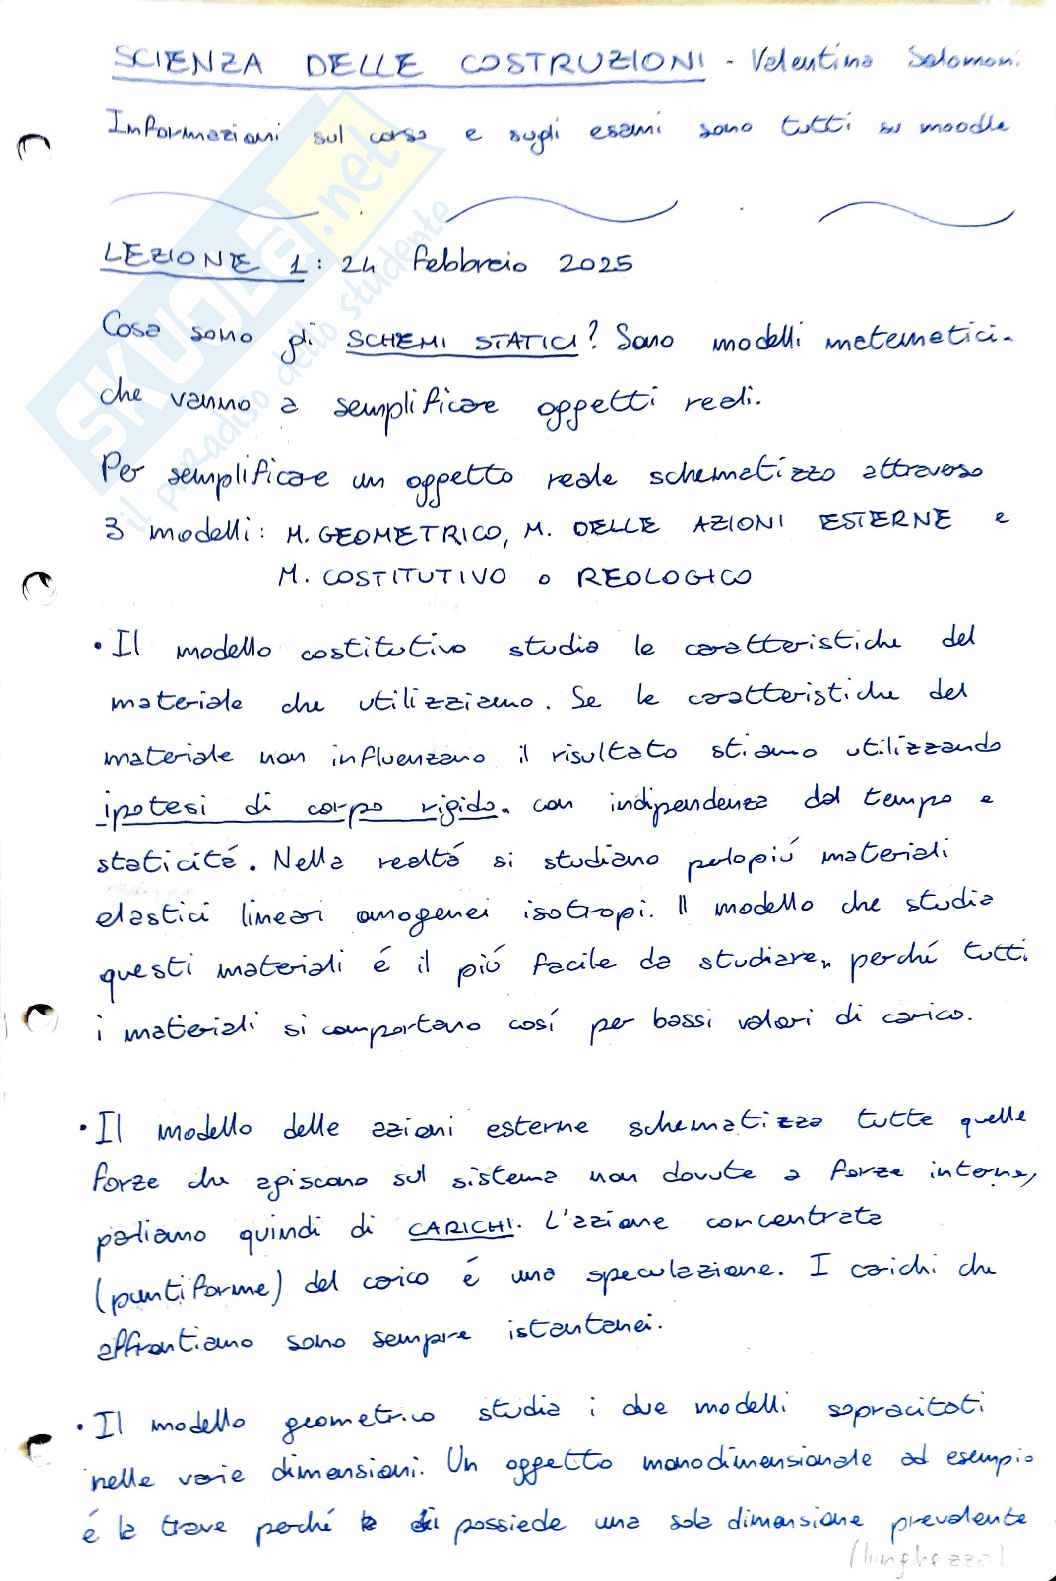 SCIENZA DELLE COSTRUZIONI - Valentina Salomoni
Informazioni sul corso e sugli esami sono tutti su moodle
LEZIONE 1: 24 febbraio 2025
Cosa sono gli SCHEMI STATICI? Sono modelli matematici
che vanno a semplificare oggetti reali.
Per semplificare un oggetto reale schematizzo attraverso
3 modelli: M. GEOMETRICO, M. DELLE AZIONI ESTERNE e
M. COSTITUTIVO o REOLOGICO
• Il modello costitutivo studia le caratteristiche del
materiale che utilizziamo. Se le caratteristiche del
materiale non influenzano il risultato stiamo utilizzando
ipotesi di corpo rigido, con indipendenza dal tempo e
staticitá. Nella realtá si studiano pelopiú materiali
elastici lineari omogenei isotropi. Il modello che studia
questi materiali é il piú facile da studiare, perché tutti
i materiali si comportano cosí per bassi valori di carico.
• Il modello delle azioni esterne schematizza tutte quelle
forze che agiscono sul sistema non dovute a forze interne,
parliamo quindi di CARICHI. L'azione concentrata
(puntiforme) del carico é una speculazione. I carichi che
affrontiamo sono sempre istantanei.
• Il modello geometrico studia i due modelli sopracitati
nelle varie dimensioni. Un oggetto monodimensionale ad esempio
é la trave perché possiede una sola dimensione prevalente
(lunghezza)
SKUOLA.net
il paradiso dello studente